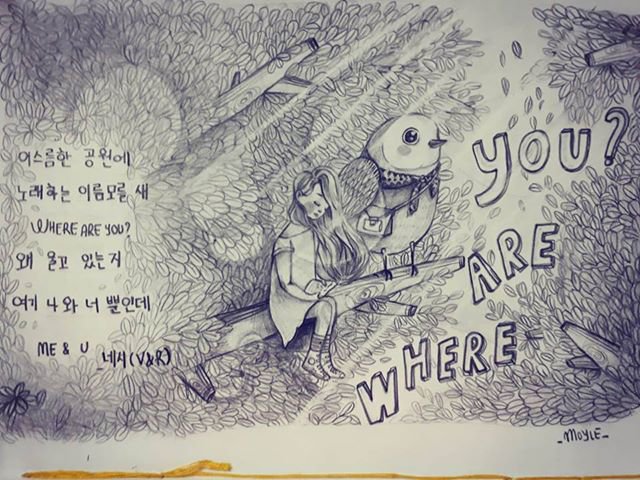 어스름한 공원에
노래하는 이름모를 새
WHERE ARE YOU?
왜 울고 있는지
여기 나와 너 뿐인데
ME & U 네시(V&R)
WHERE
ARE
YOU?
_MOYLE_